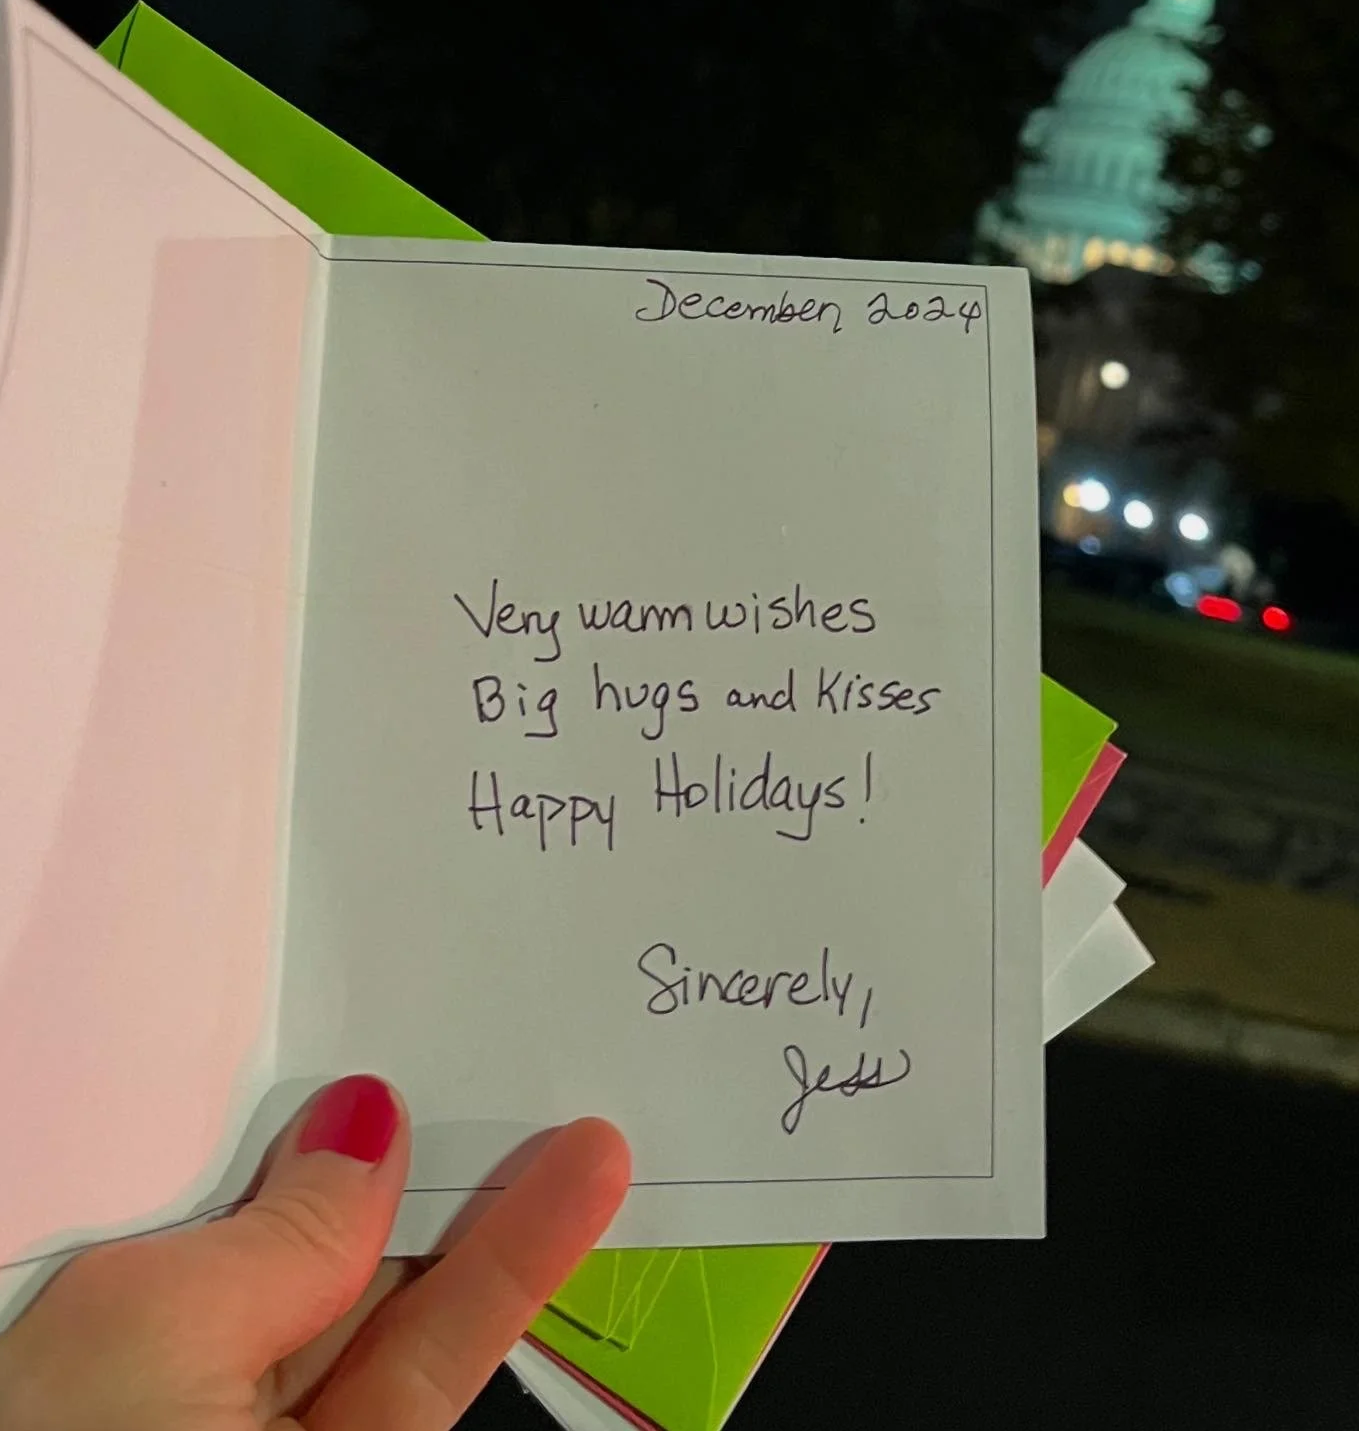 December 2024
Very warm wishes
Big hugs and kisses
Happy Holidays!
Sincerely,
Jess